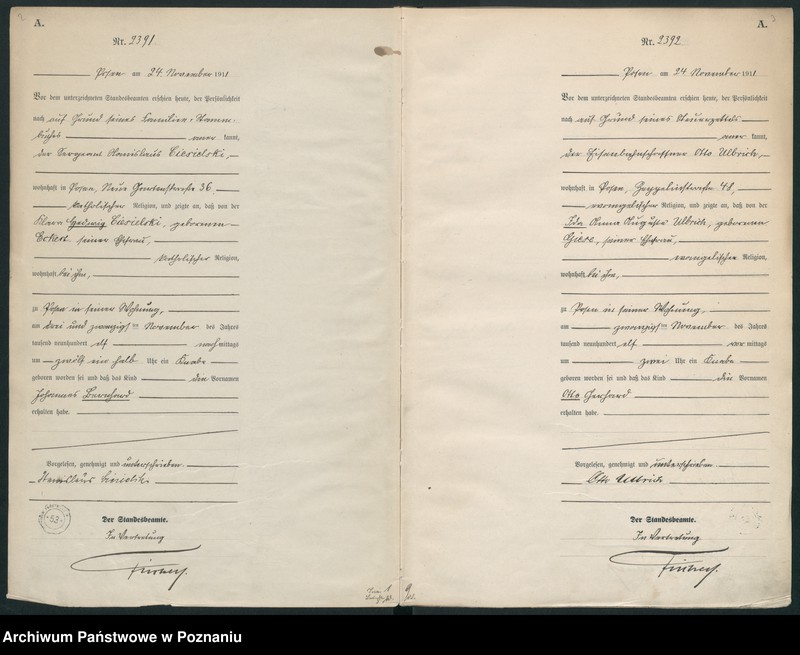 A.
Nr. 2391
Posen am 24. November 1911
Vor dem unterzeichneten Standesbeamten erschien heute, der Persönlichkeit
nach auf Grund seines Familien-Stamm-
buches anerkannt,
der Sergeant Stanislaus Ciesielski,
wohnhaft in Posen, Neue Gartenstraße 36,
katholischer Religion, und zeigte an, daß von der
Klara Hedwig Ciesielski, geborenen
Eckert, seiner Ehefrau,
katholischer Religion,
wohnhaft bei ihm,
zu Posen in seiner Wohnung,
am drei und zwanzigsten November des Jahres
tausend neunhundert elf nachmittags
um zwölf ein halb Uhr ein Knabe
geboren worden sei und daß das Kind den Vornamen
Johannes Bernhard
erhalten habe.
Vorgelesen, genehmigt und unterschrieben
Stanislaus Ciesielski
Der Standesbeamte.
In Vertretung
A.
Nr. 2392
Posen am 24 November 1911
Vor dem unterzeichneten Standesbeamten erschien heute, der Persönlichkeit
nach auf Grund seines Steuerzettels
anerkannt,
der Eisenbahnschaffner Otto Ulbrich,
wohnhaft in Posen, Zeppelinstraße 48,
evangelischer Religion, und zeigte an, daß von der
Ida Anna Auguste Ulbrich, geborenen
Giese, seiner Ehefrau,
evangelischer Religion,
wohnhaft bei ihm,
zu Posen in seiner Wohnung,
am zwanzigsten November des Jahres
tausend neunhundert elf vormittags
um zwei Uhr ein Knabe
geboren worden sei und daß das Kind die Vornamen
Otto Gerhard
erhalten habe.
Vorgelesen, genehmigt und unterschrieben
Otto Ulbrich
Der Standesbeamte.
In Vertretung
Archiwum Państwowe w Poznaniu